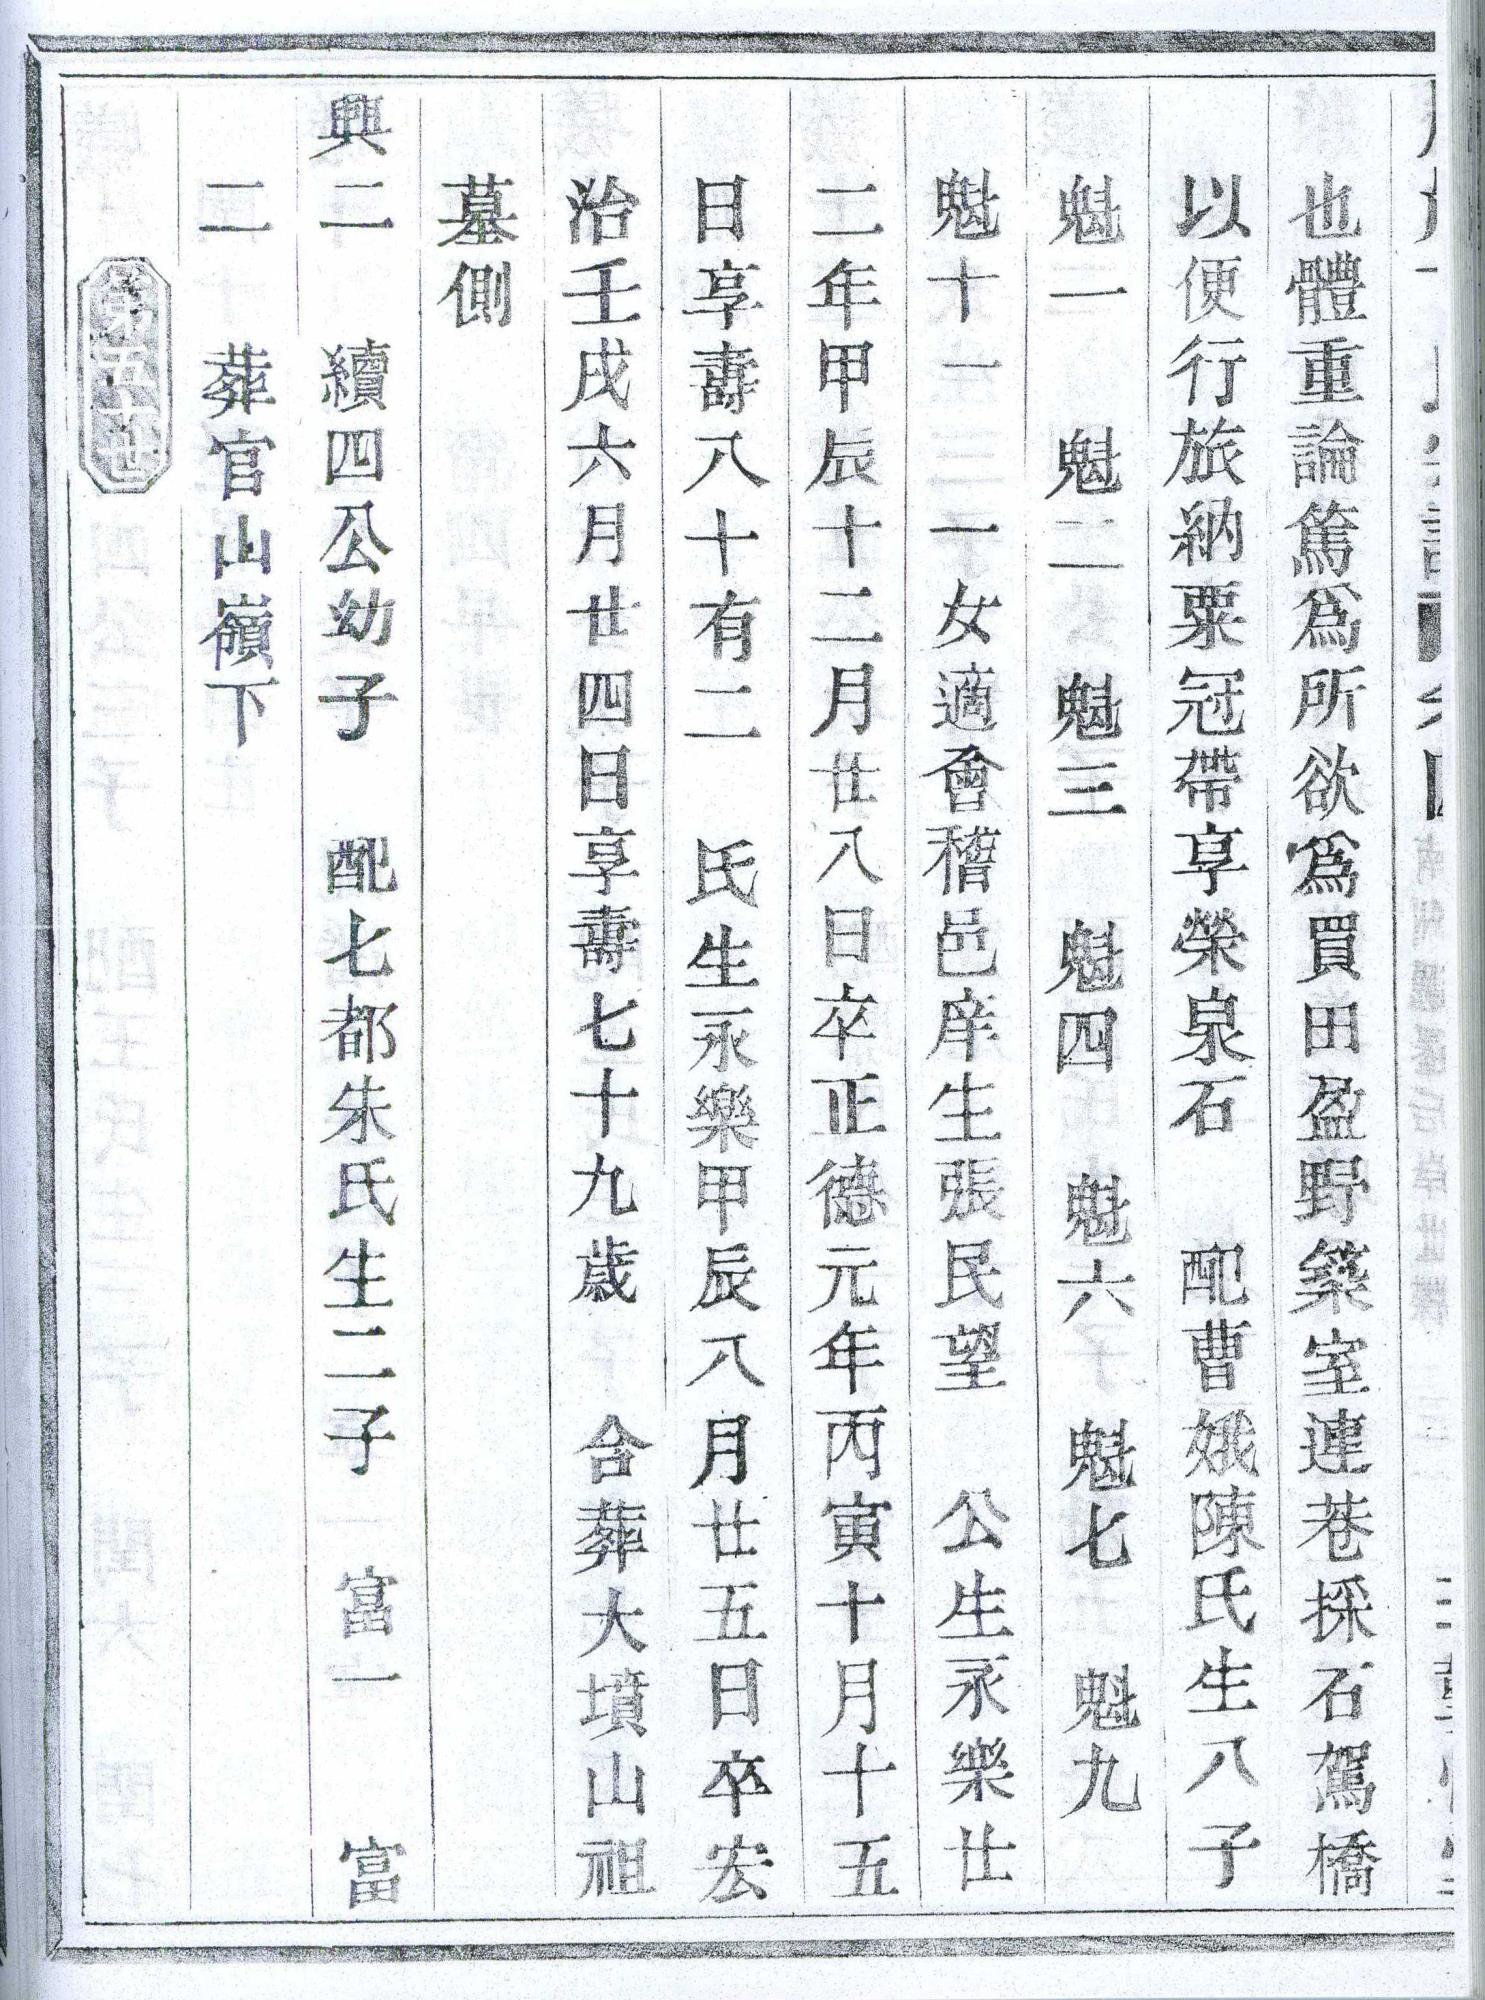 也體重論篤爲所欲爲買田盈野築室連巷採石駕橋
以便行旅納粟冠帶享榮泉石 配曹娥陳氏生八子
魁一 魁二 魁三 魁四 魁六 魁七 魁九
魁十一 一女適會稽邑庠生張民望 公生永樂廿
二年甲辰十二月廿八日卒正德元年丙寅十月十五
日享壽八十有二 氏生永樂甲辰八月廿五日卒宏
治壬戌六月廿四日享壽七十九歲 合葬大墳山祖
墓側
興二 續四公幼子 配七都朱氏生二子 富一 富
二 葬官山嶺下
第五十世